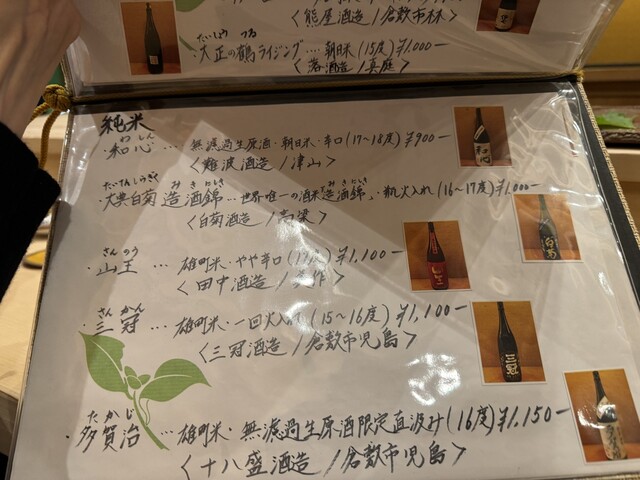 〈熊屋酒造/倉敷市林〉
たいしょう つる
・大正の鶴ライジング…朝日米(15度)¥1,000ー
〈落酒造/真庭〉
純米
わ しん
・和心…無濾過生原酒・朝日米・辛口(17~18度)¥900ー
〈難波酒造/津山〉
たいてんしらぎく みきにしき
・大典白菊 造酒錦…世界唯一の酒米「造酒錦」・瓶火入れ(16~17度)¥1,000ー
〈白菊酒造/高梁〉
さん のう
・山王…雄町米・やや辛口(17度)¥1,100ー
〈田中酒造/美作〉
さん かん
・三冠…雄町米・一回火入れ(15~16度)¥1,100ー
〈三冠酒造/倉敷市児島〉
た か じ
・多賀治…雄町米・無濾過生原酒限定直汲み(16度)¥1,150ー
〈十八盛酒造/倉敷市児島〉
三冠